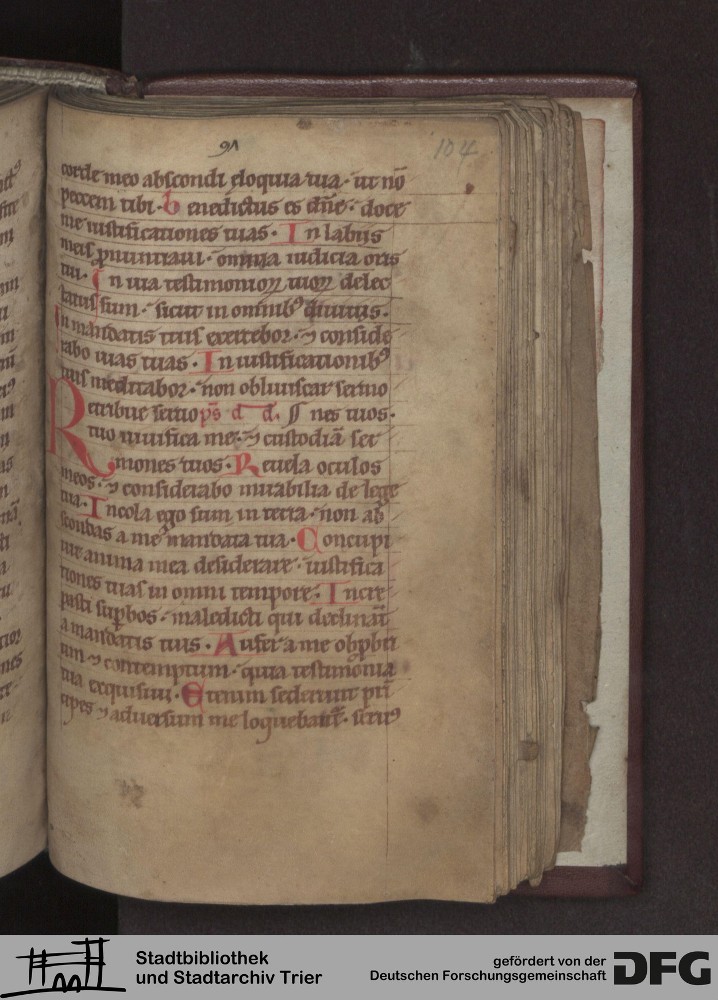 104
corde meo abscondi eloquia tua · ut nō
peccem tibi · benedictus es dn̄e · doce
me iustificationes tuas · In labiis
meis ꝓnuntiaui · omnia iudicia oris
tui · In uia testimonioꝝ tuoꝝ delec
tatus sum · sicut in omnibꝰ diuitiis ·
In mandatis tuis exercebor · ⁊ conside
rabo uias tuas · In iustificationibꝰ
tuis meditabor · non obliuiscar sermo
Retribue seruo ps d d. ¶ nes tuos ·
tuo uiuifica me · ⁊ custodiā ser
mones tuos · Reuela oculos
meos · ⁊ considerabo mirabilia de lege
tua · Incola ego sum in terra · non ab
scondas a me mandata tua · Concupi
uit anima mea desiderare · iustifica
tiones tuas in omni tempore · Incre
pasti suꝑbos · maledicti qui declināt
a mandatis tuis · Aufer a me obꝓbri
um ⁊ contemptum · quia testimonia
tua exquisiui · Etenim sederunt prī
cipes ⁊ aduersum me loquebant᷑ · seruꝰ
Stadtbibliothek
und Stadtarchiv Trier
gefördert von der
Deutschen Forschungsgemeinschaft
DFG